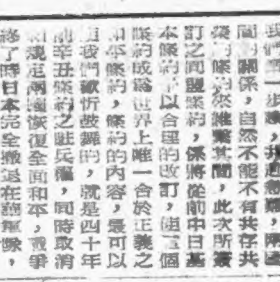 間關係，自然不能不有共存共
條約來維繫其間，此次所簽
訂之同盟條約，係將從前中日基
本條約予以合理的改訂，使這個
條約成為世界上唯一合於正義之
和平條約，條約的內容，最可以
我們歡忻鼓舞的，就是四十年
前辛丑條約之駐兵權，同時取消
和規定兩國恢復全面和平，戰爭
終了時日本完全撤退在華軍隊，